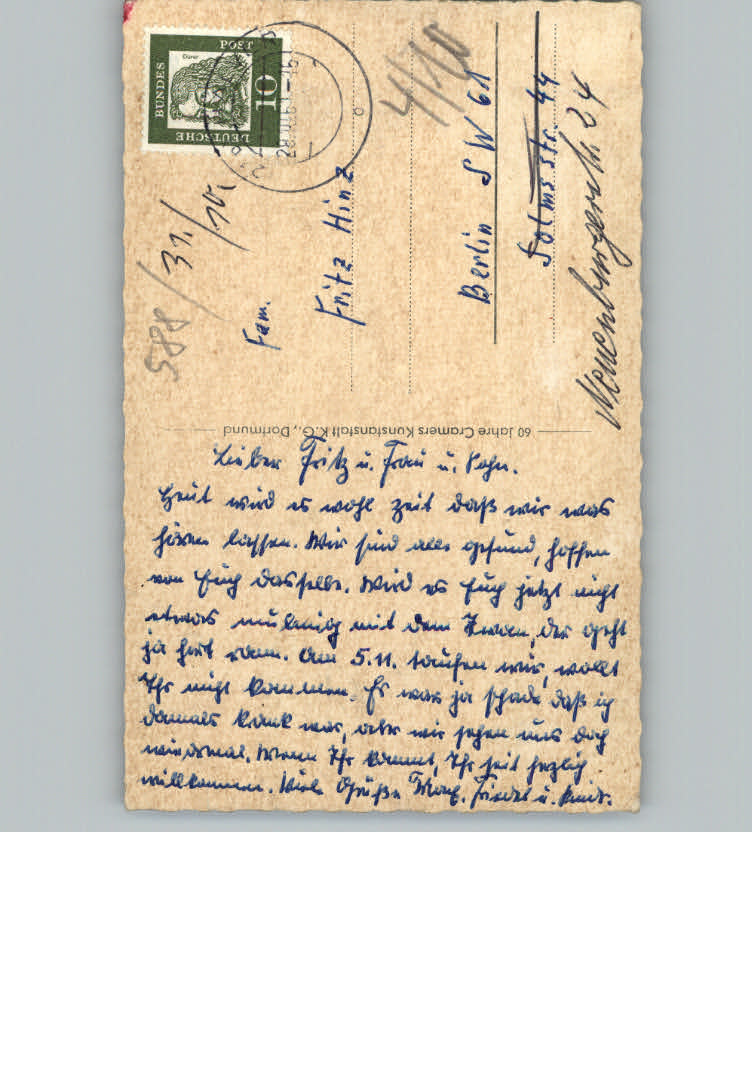 DEUTSCHE BUNDESPOST
10
Dürer
28.10.61-16
4/10
588/31./10.
Fam.
Fritz Hinz
Berlin SW 61
Solmsstr. 44
Neuenburgerstr. 24
60 Jahre Cramers Kunstanstalt K.G., Dortmund
Lieber Fritz u. Frau u. Sohn.
Heut wird es wohl zeit daß wir was
hören lassen. Wir sind alle gesund, hoffen
von Euch dasselbe. Wird es Euch jetzt nicht
etwas mulmig mit dem Iwan, der geht
ja hart ran. Am 5.11. taufen wir, wollt
Ihr nicht kommen. Es war ja schade daß ich
damals krank war, aber wir sehen uns doch
wiedermal. Wenn Ihr kommt, Ihr seit herzlich
willkommen. Viele Grüße Max. Friedel u. Kind.